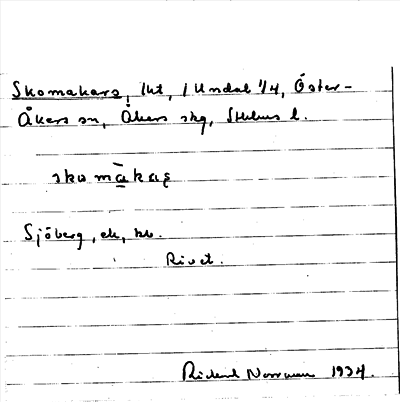 Skomakars, lht, / Undal 1/4, Öster-
Åkers sn, Åkers skg, Sthlms l.
skomàkaʂ
Sjöberg, ek, kb.
Rivet.
Rickard Norrman 1934.